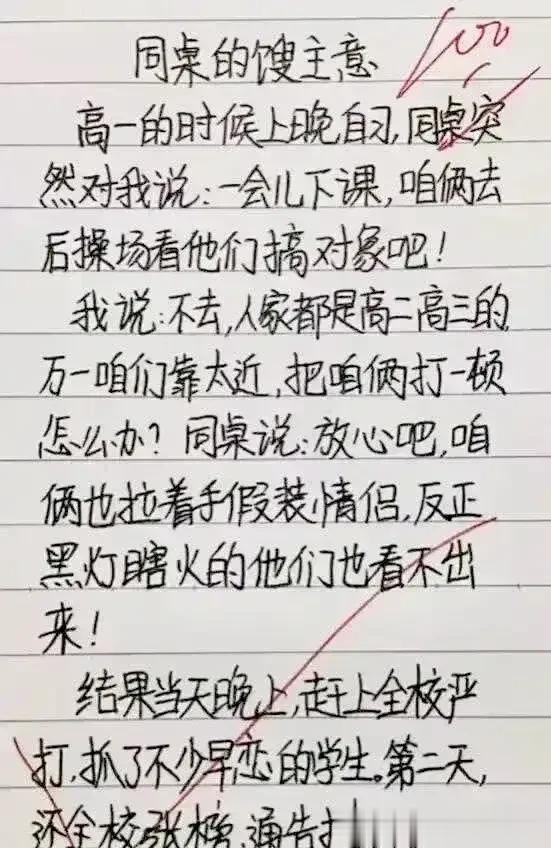 100
同桌的馊主意
高一的时候上晚自习,同桌突
然对我说:一会儿下课,咱俩去
后操场看他们搞对象吧!
我说:不去,人家都是高二高三的,
万一咱们靠太近,把咱俩打一顿
怎么办?同桌说:放心吧,咱
俩也拉着手假装情侣,反正
黑灯瞎火的他们也看不出
来!
结果当天晚上,赶上全校严
打,抓了不少早恋的学生。第二天,
还全校张榜,通告